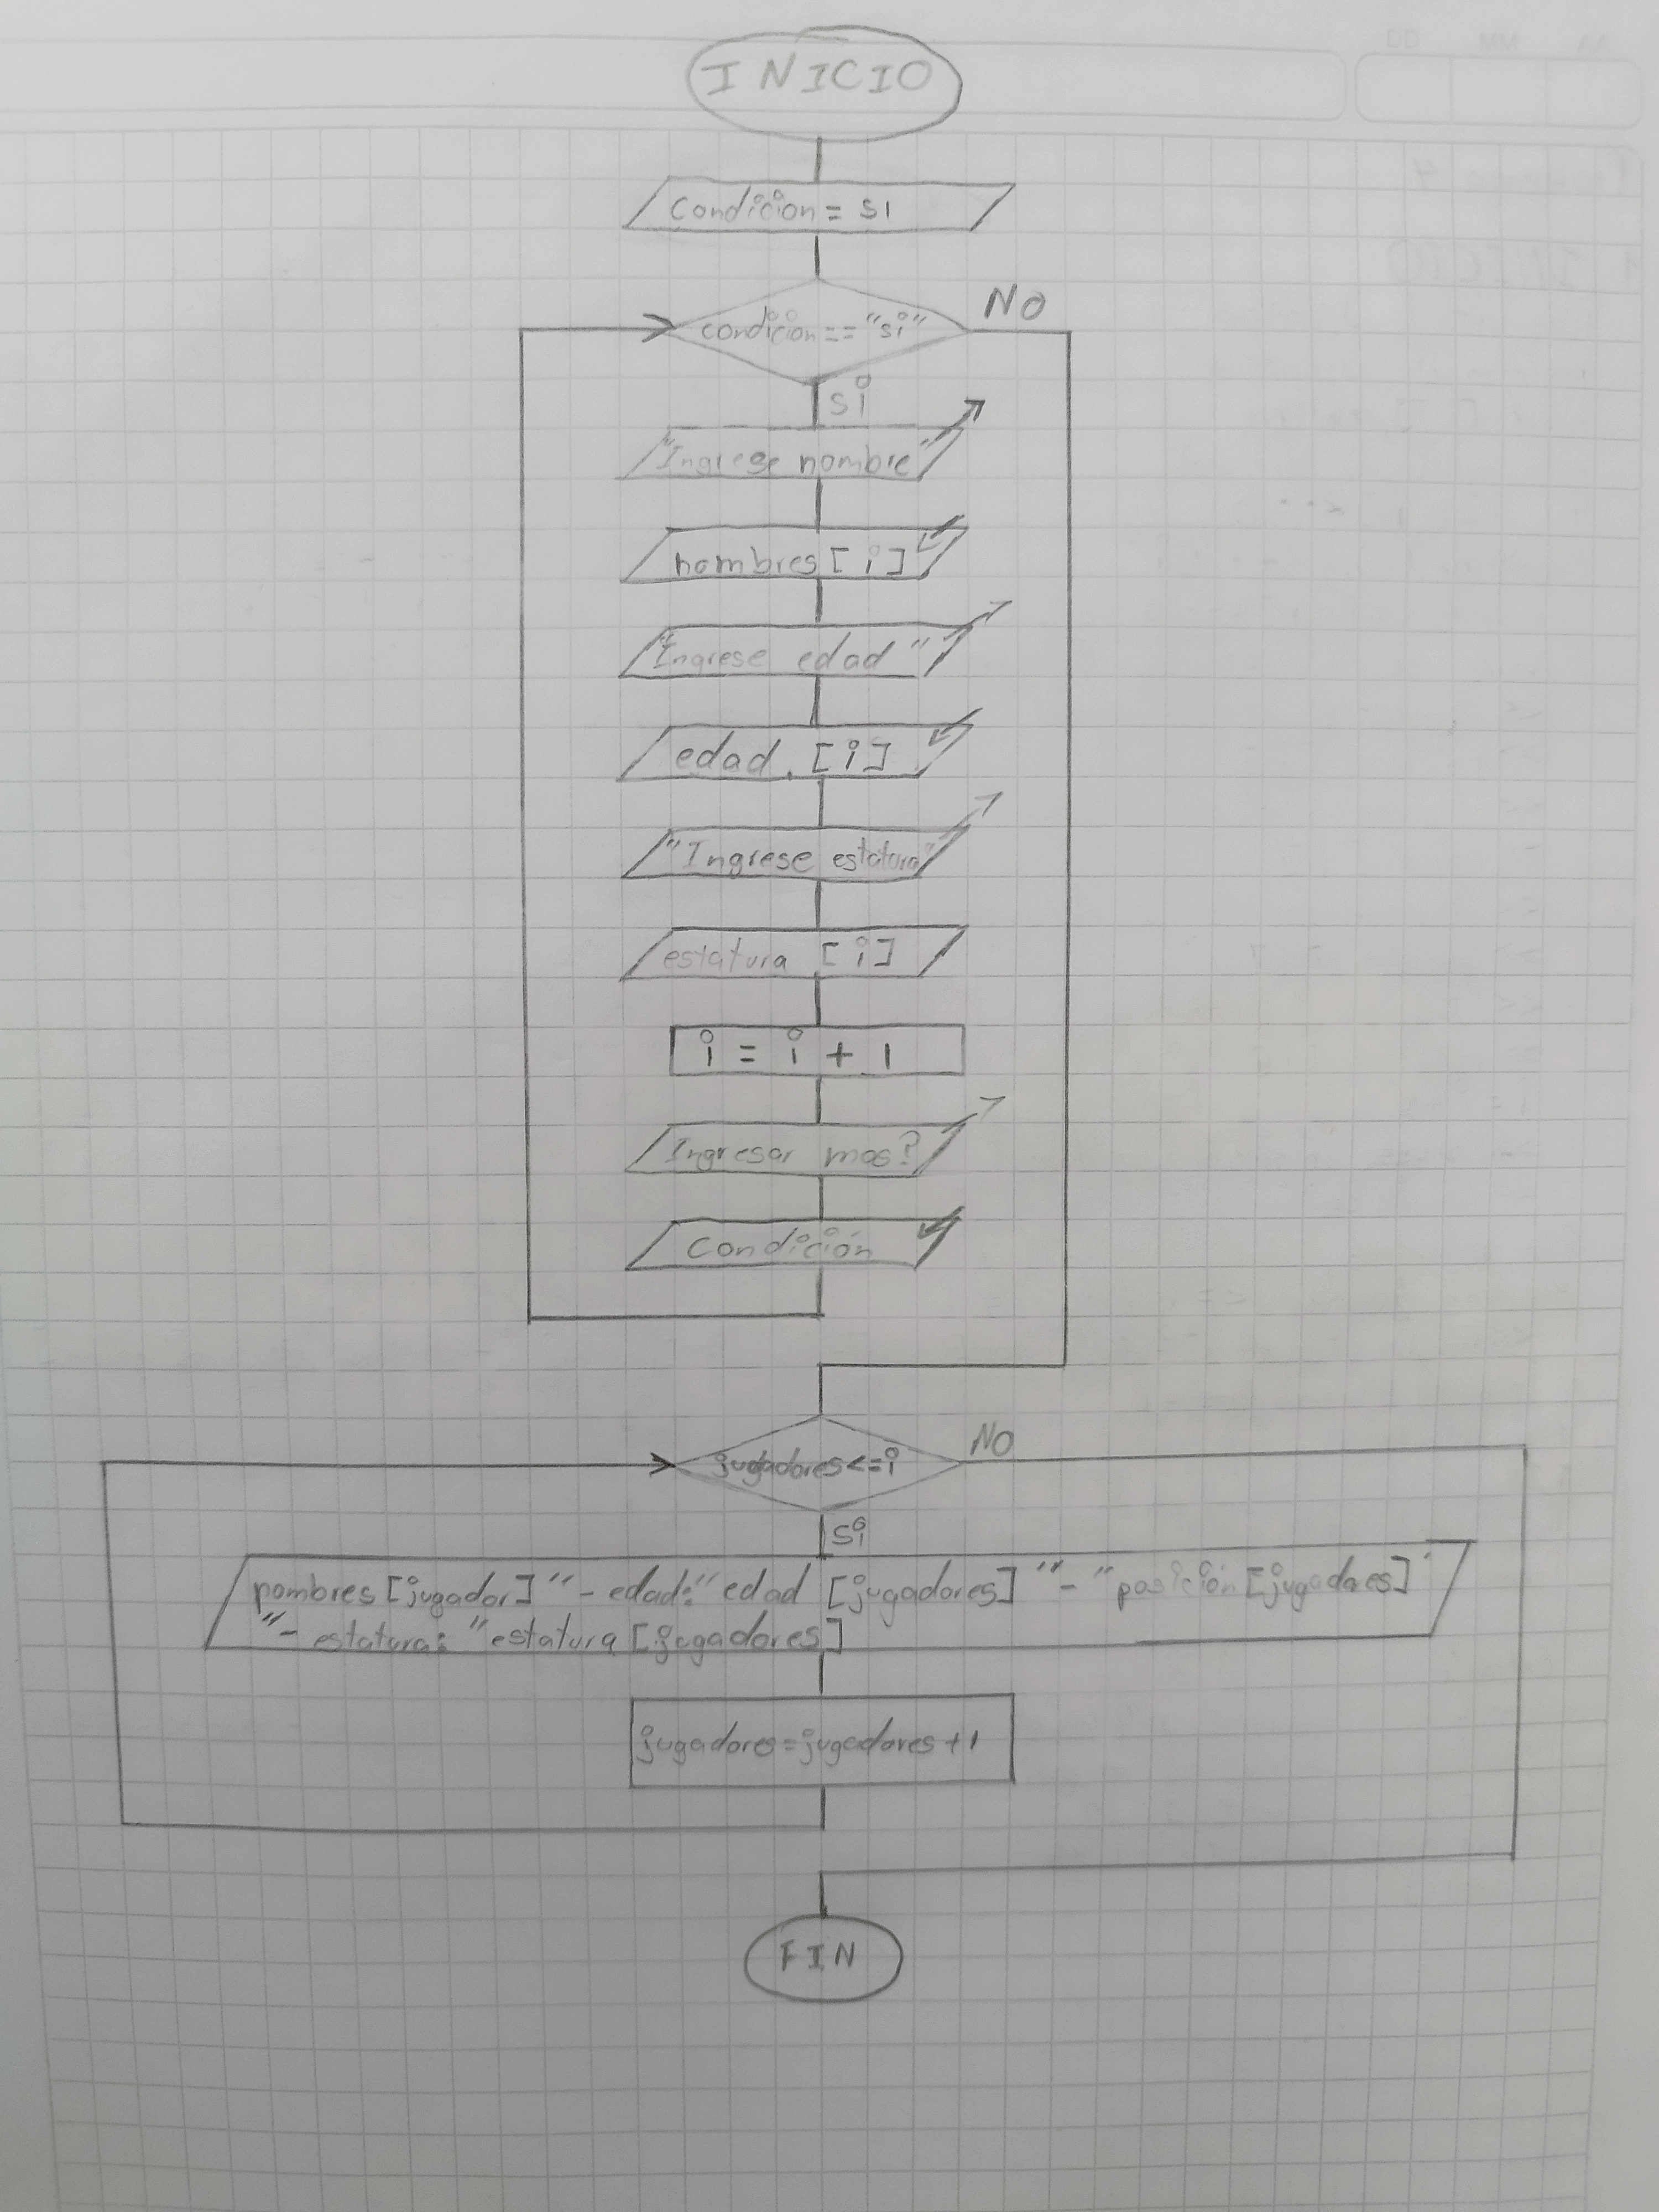 DD MM AA
INICIO
Condicion = SI
condicion == "si"
NO
si
"Ingrese nombre"
nombres [i]
"Ingrese edad"
edad [i]
"Ingrese estatura"
estatura [i]
i = i + 1
Ingresar mas?
Condición
jugadores <= i
NO
si
nombres [jugador] "- edad:" edad [jugadores] "- "posición [jugadores]
"- estatura: "estatura [jugadores]
jugadores = jugadores + 1
FIN